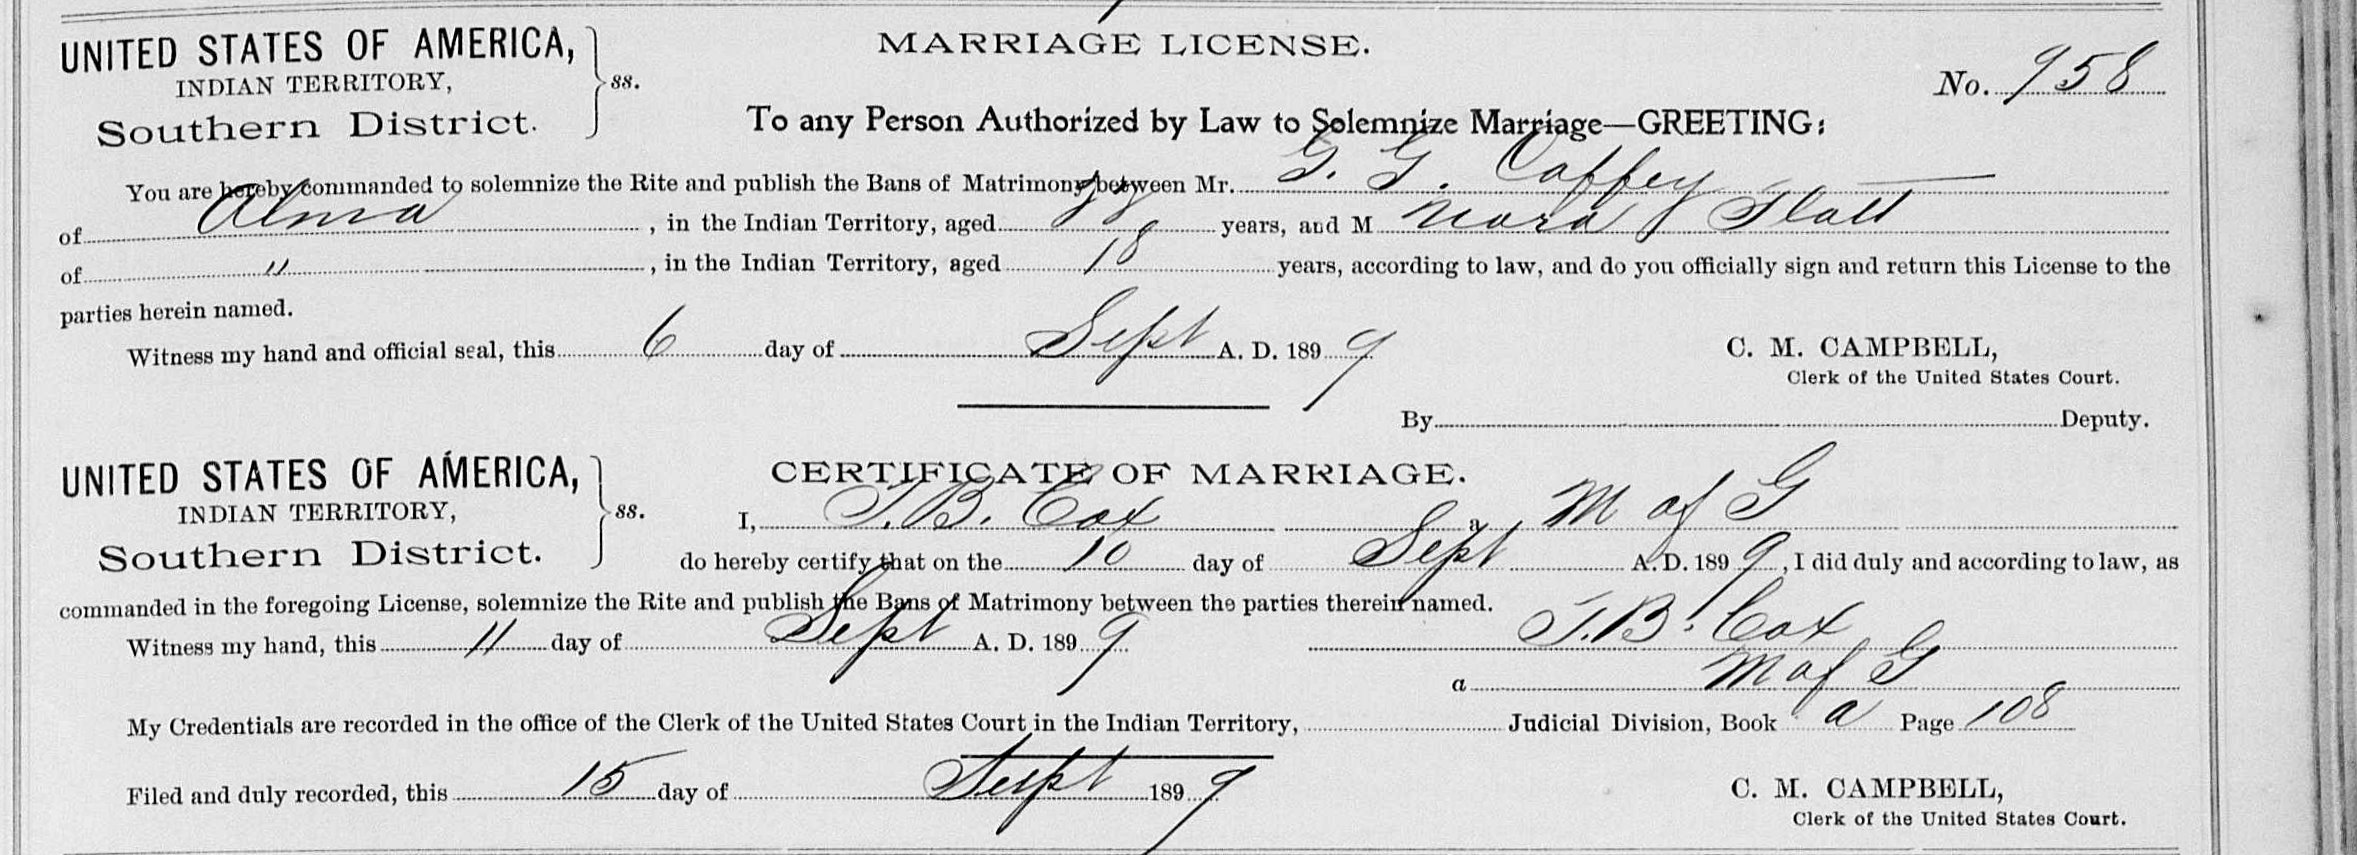 UNITED STATES OF AMERICA,
INDIAN TERRITORY,
Southern District.
ss.
MARRIAGE LICENSE.
No. 958
To any Person Authorized by Law to Solemnize Marriage—GREETING:
You are hereby commanded to solemnize the Rite and publish the Bans of Matrimony between Mr. G. G. Caffey
of Alma, in the Indian Territory, aged years, and M Nora Flatt
of " , in the Indian Territory, aged 18 years, according to law, and do you officially sign and return this License to the
parties herein named.
Witness my hand and official seal, this 6 day of Sept A. D. 1899
C. M. CAMPBELL,
Clerk of the United States Court.
By Deputy.
UNITED STATES OF AMERICA,
INDIAN TERRITORY,
Southern District.
ss.
CERTIFICATE OF MARRIAGE.
I, T. B. Cox a M of G
do hereby certify that on the 10 day of Sept A. D. 1899, I did duly and according to law, as
commanded in the foregoing License, solemnize the Rite and publish the Bans of Matrimony between the parties therein named.
Witness my hand, this 11 day of Sept A. D. 1899 T. B. Cox
a M of G
My Credentials are recorded in the office of the Clerk of the United States Court in the Indian Territory, Judicial Division, Book a Page 108
Filed and duly recorded, this 15 day of Sept 1899
C. M. CAMPBELL,
Clerk of the United States Court.